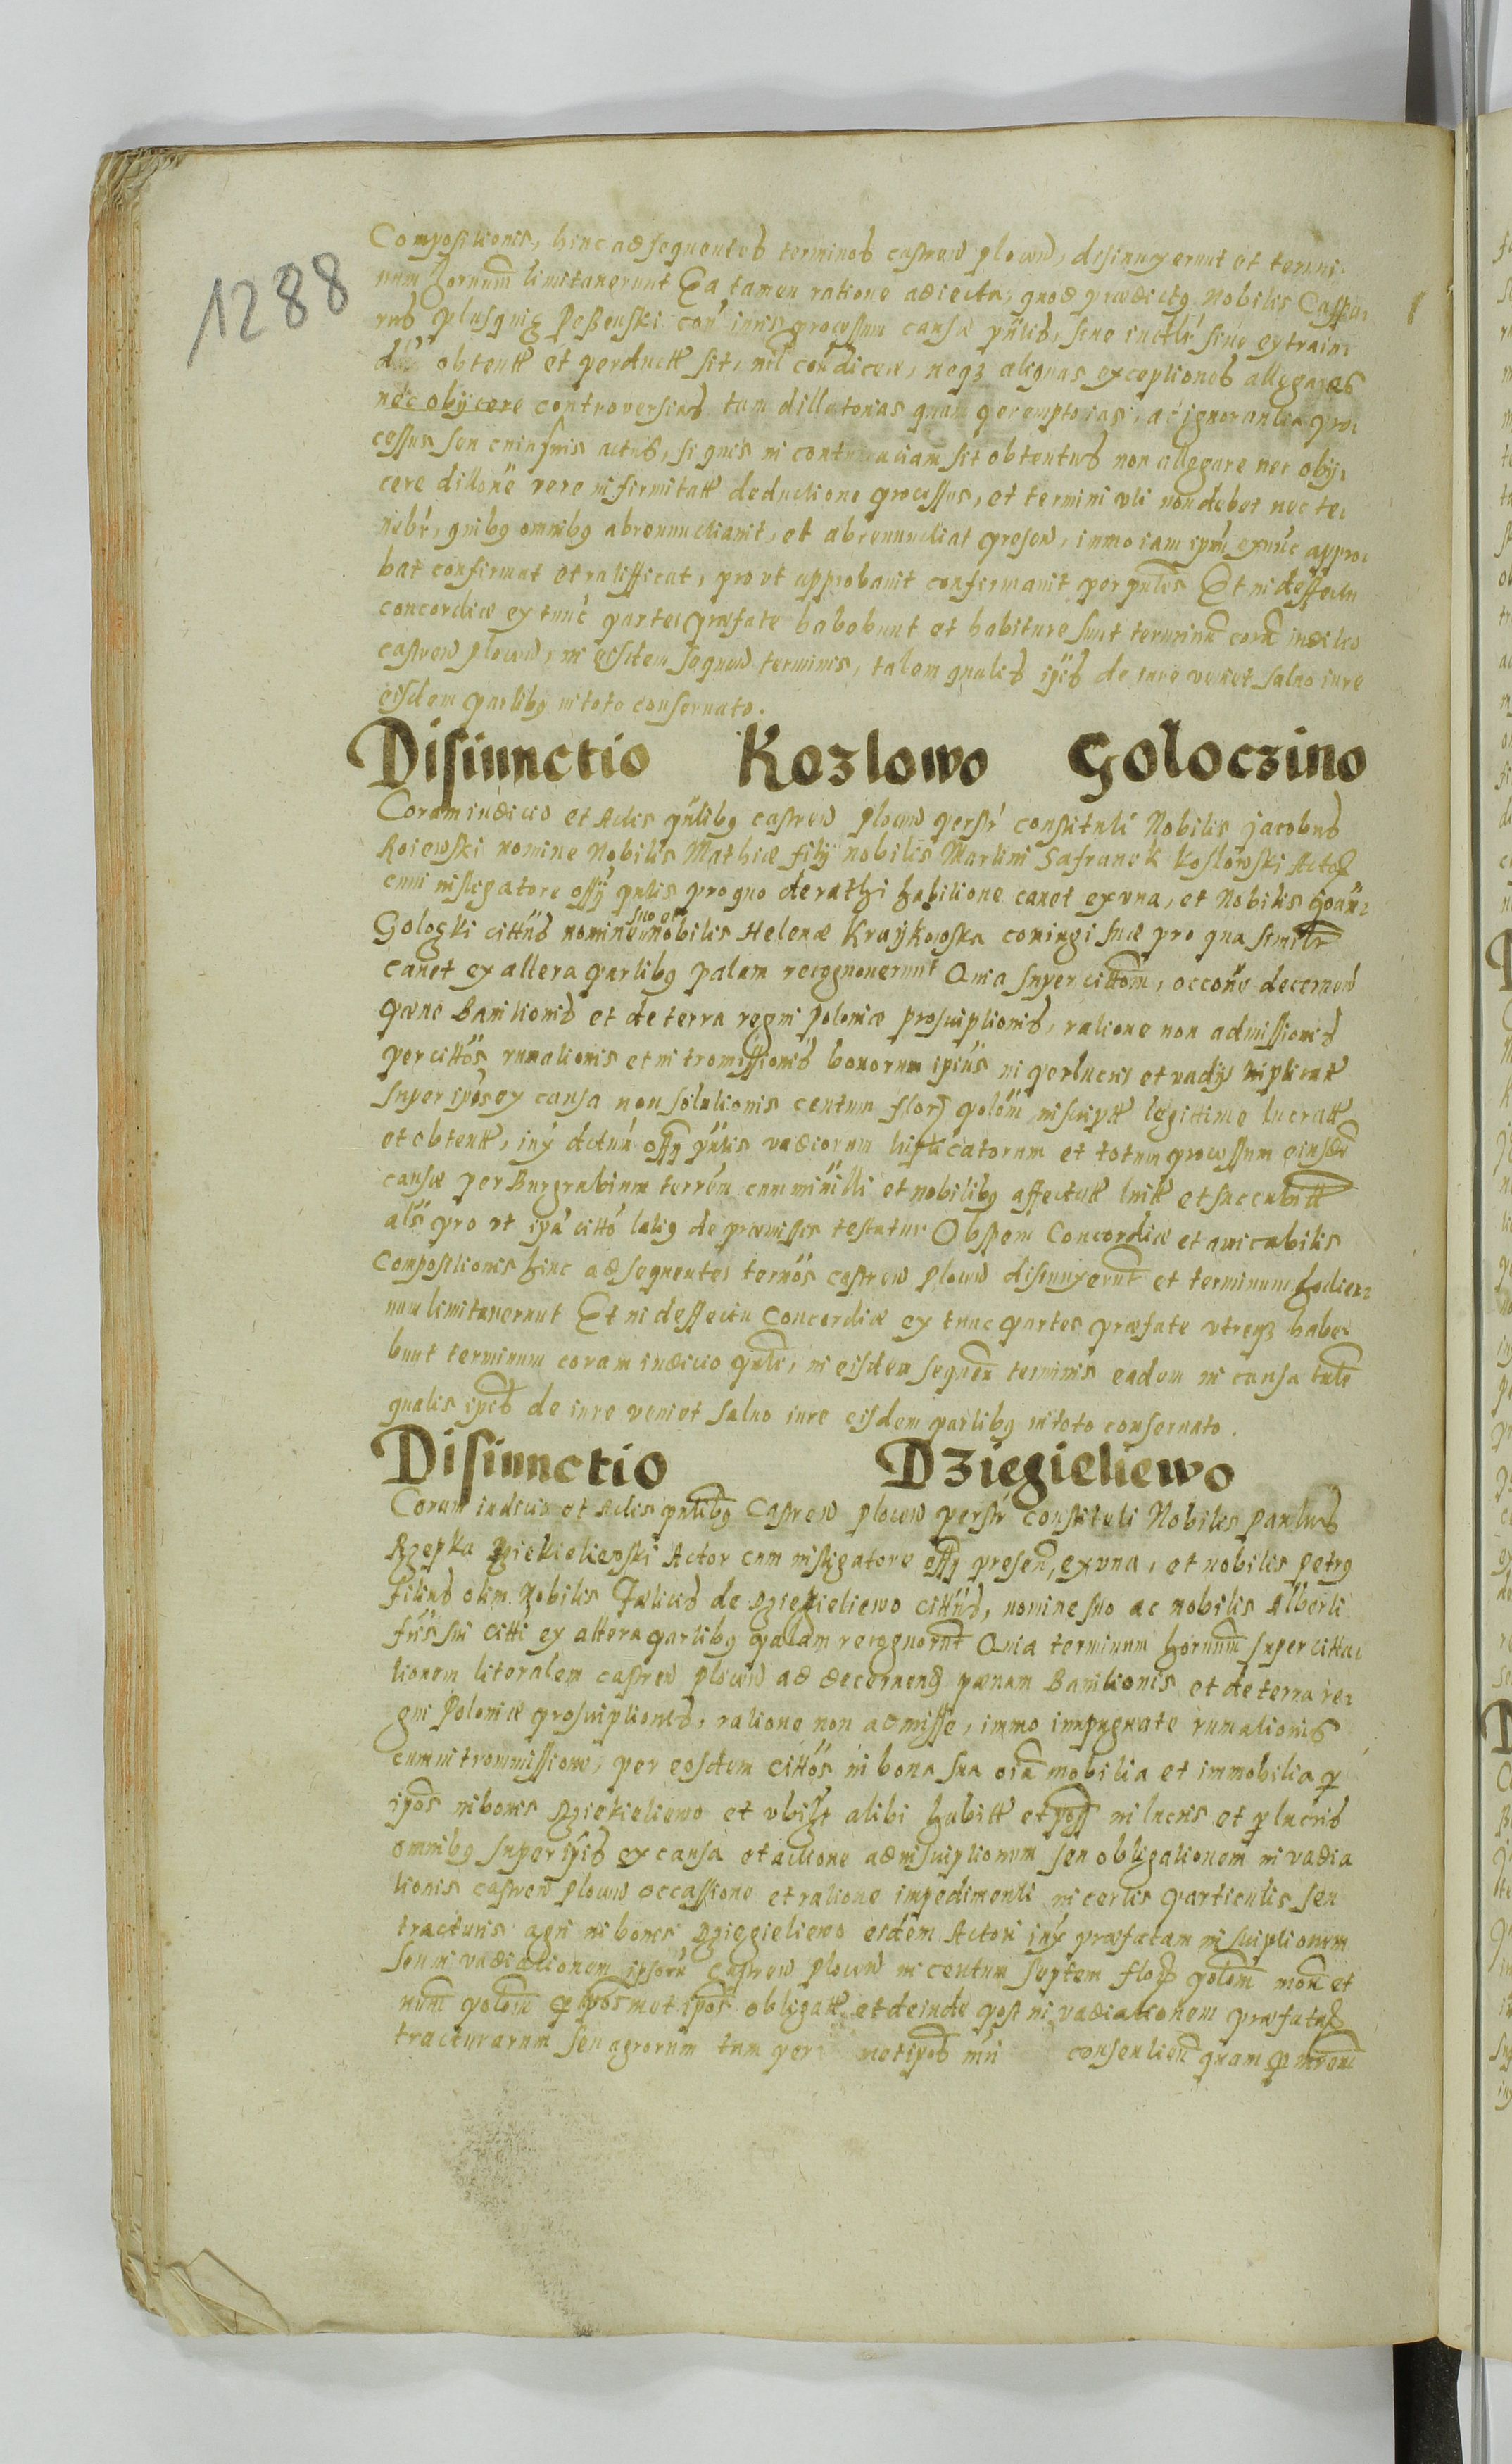 1288
Compositionis, hinc ad sequentes terminos castren plocen, disiunxerunt et termi:
num hornum limitauerunt Ea tamen ratione adiecta, quod prædictg Nobilis Caspa:
rus Peßenski iuris processum causæ pntis, siue
obtentt et perductt sit, nil condicere, neqz aliquas exceptiones allegare
nec obijcere controversias tam dillatorias quam peremptorias, ac ignorantia pro:
cessus seu cuiusuis actus, si quis in contumaciam sit obtentus non allegare nec obij:
cere infirmitatt deductione processus, et termini vti non debet nec te:
nebr, quibg omnibg abrenunctiauit, et abrenunctiat presen, immo iam ipm exnuc appro:
bat confirmat et ratifficat, pro vt approbauit confirmauit per pntes Et in deffectu
concordiæ ex tunc partes præfate habebunt et habiture sunt terminu cora iudicio
castren plocen, in eisdem sequen terminis, talem qualis ipis de iure veniet saluo iure
eisdem partibg in toto conseruato.
Disiunctio Kozlowo Goloczino
Coram iudicio et Actis pntibg castren plocen perstr constituti Nobilis Jacobus
Roiewski nomine Nobilis Mathiæ filij nobilis Martini Safranek Koslowski Actor
cum instigatore offy pntis pro quo de rathi habitione cauet ex vna, et Nobilis Joan:
Golocki cittus nomine suo et nobilis Helenæ Kraijkowska coniugi suæ pro qua similr
cauet ex altera partibg palam recognouerunt Quia super cittom, occone decernen
pæne Banitionis et de terra regni poloniæ proscriptionis, ratione non admissionis
per cittos rumationis et intromissionis bonorum ipius in perlucris et vadijs triplicatt
super ipos ex causa non solutionis centum flor polom inscriptt legittime lucratt
et obtentt, offy pntis vadiorum triplicatorum et totum processum eiusde
causæ per Burgrabium terrem cum minlli et nobilibg affectatt luitt et succubitt
als pro vt ipa citto latig de præmissis testatur Ob spem Concordiæ et amicabilis
compositionis hinc ad sequentes termos castren plocen disiunxerut et terminum hodier:
num limitauerunt Et in deffectu Concordiæ ex tunc partes præfate vtreqz habe:
bunt terminum coram iudicio pnti, in eisdem sequen terminis eadem in causa tale
qualis ipis de iure veniet saluo iure eisdem partibg in toto conseruato.
Disiunctio Dziegieliewo
Coram iudicio et Actis pntibg Castren plocen perstr constituti Nobiles Paulus
Rzepka Dziekieliewski Actor cum instigatore offy presen, ex vna, et nobilis petrg
filius olim Nobilis Fælicis de Dziegieliewo cittus, nomine suo ac nobilis Alberti
fris sui citti ex altera partibg palam recognorut Quia terminum hornum super citta:
tionem literalem castren plocen ad decernend pænam Banitionis et de terra re:
gni Poloniæ proscriptionis, ratione non admisse, immo impugnate rumationis
cum intromissione, per eosdem cittos in bona sua oia mobilia et immobilia p
ipos in bonis Dziekieliewo et vbilz alibi habitt et poss in lucris et plucris
omnibg super ipis ex causa et actione ad inscriptionem seu obligationem in vadia
tionis castren plocen occassione et ratione impedimenti in certis particulis seu
tracturis agri in bonis Dziegieliewo eidem Actori præfatam inscriptionem
seu in vadiationem ipsoru castren plocen in centum septem flor polom mon et
num polom p ipos met ipos obligatt et deinde post in vadiationem præfatar
tracturarum seu agrorum tam per met ipos consentien quam p